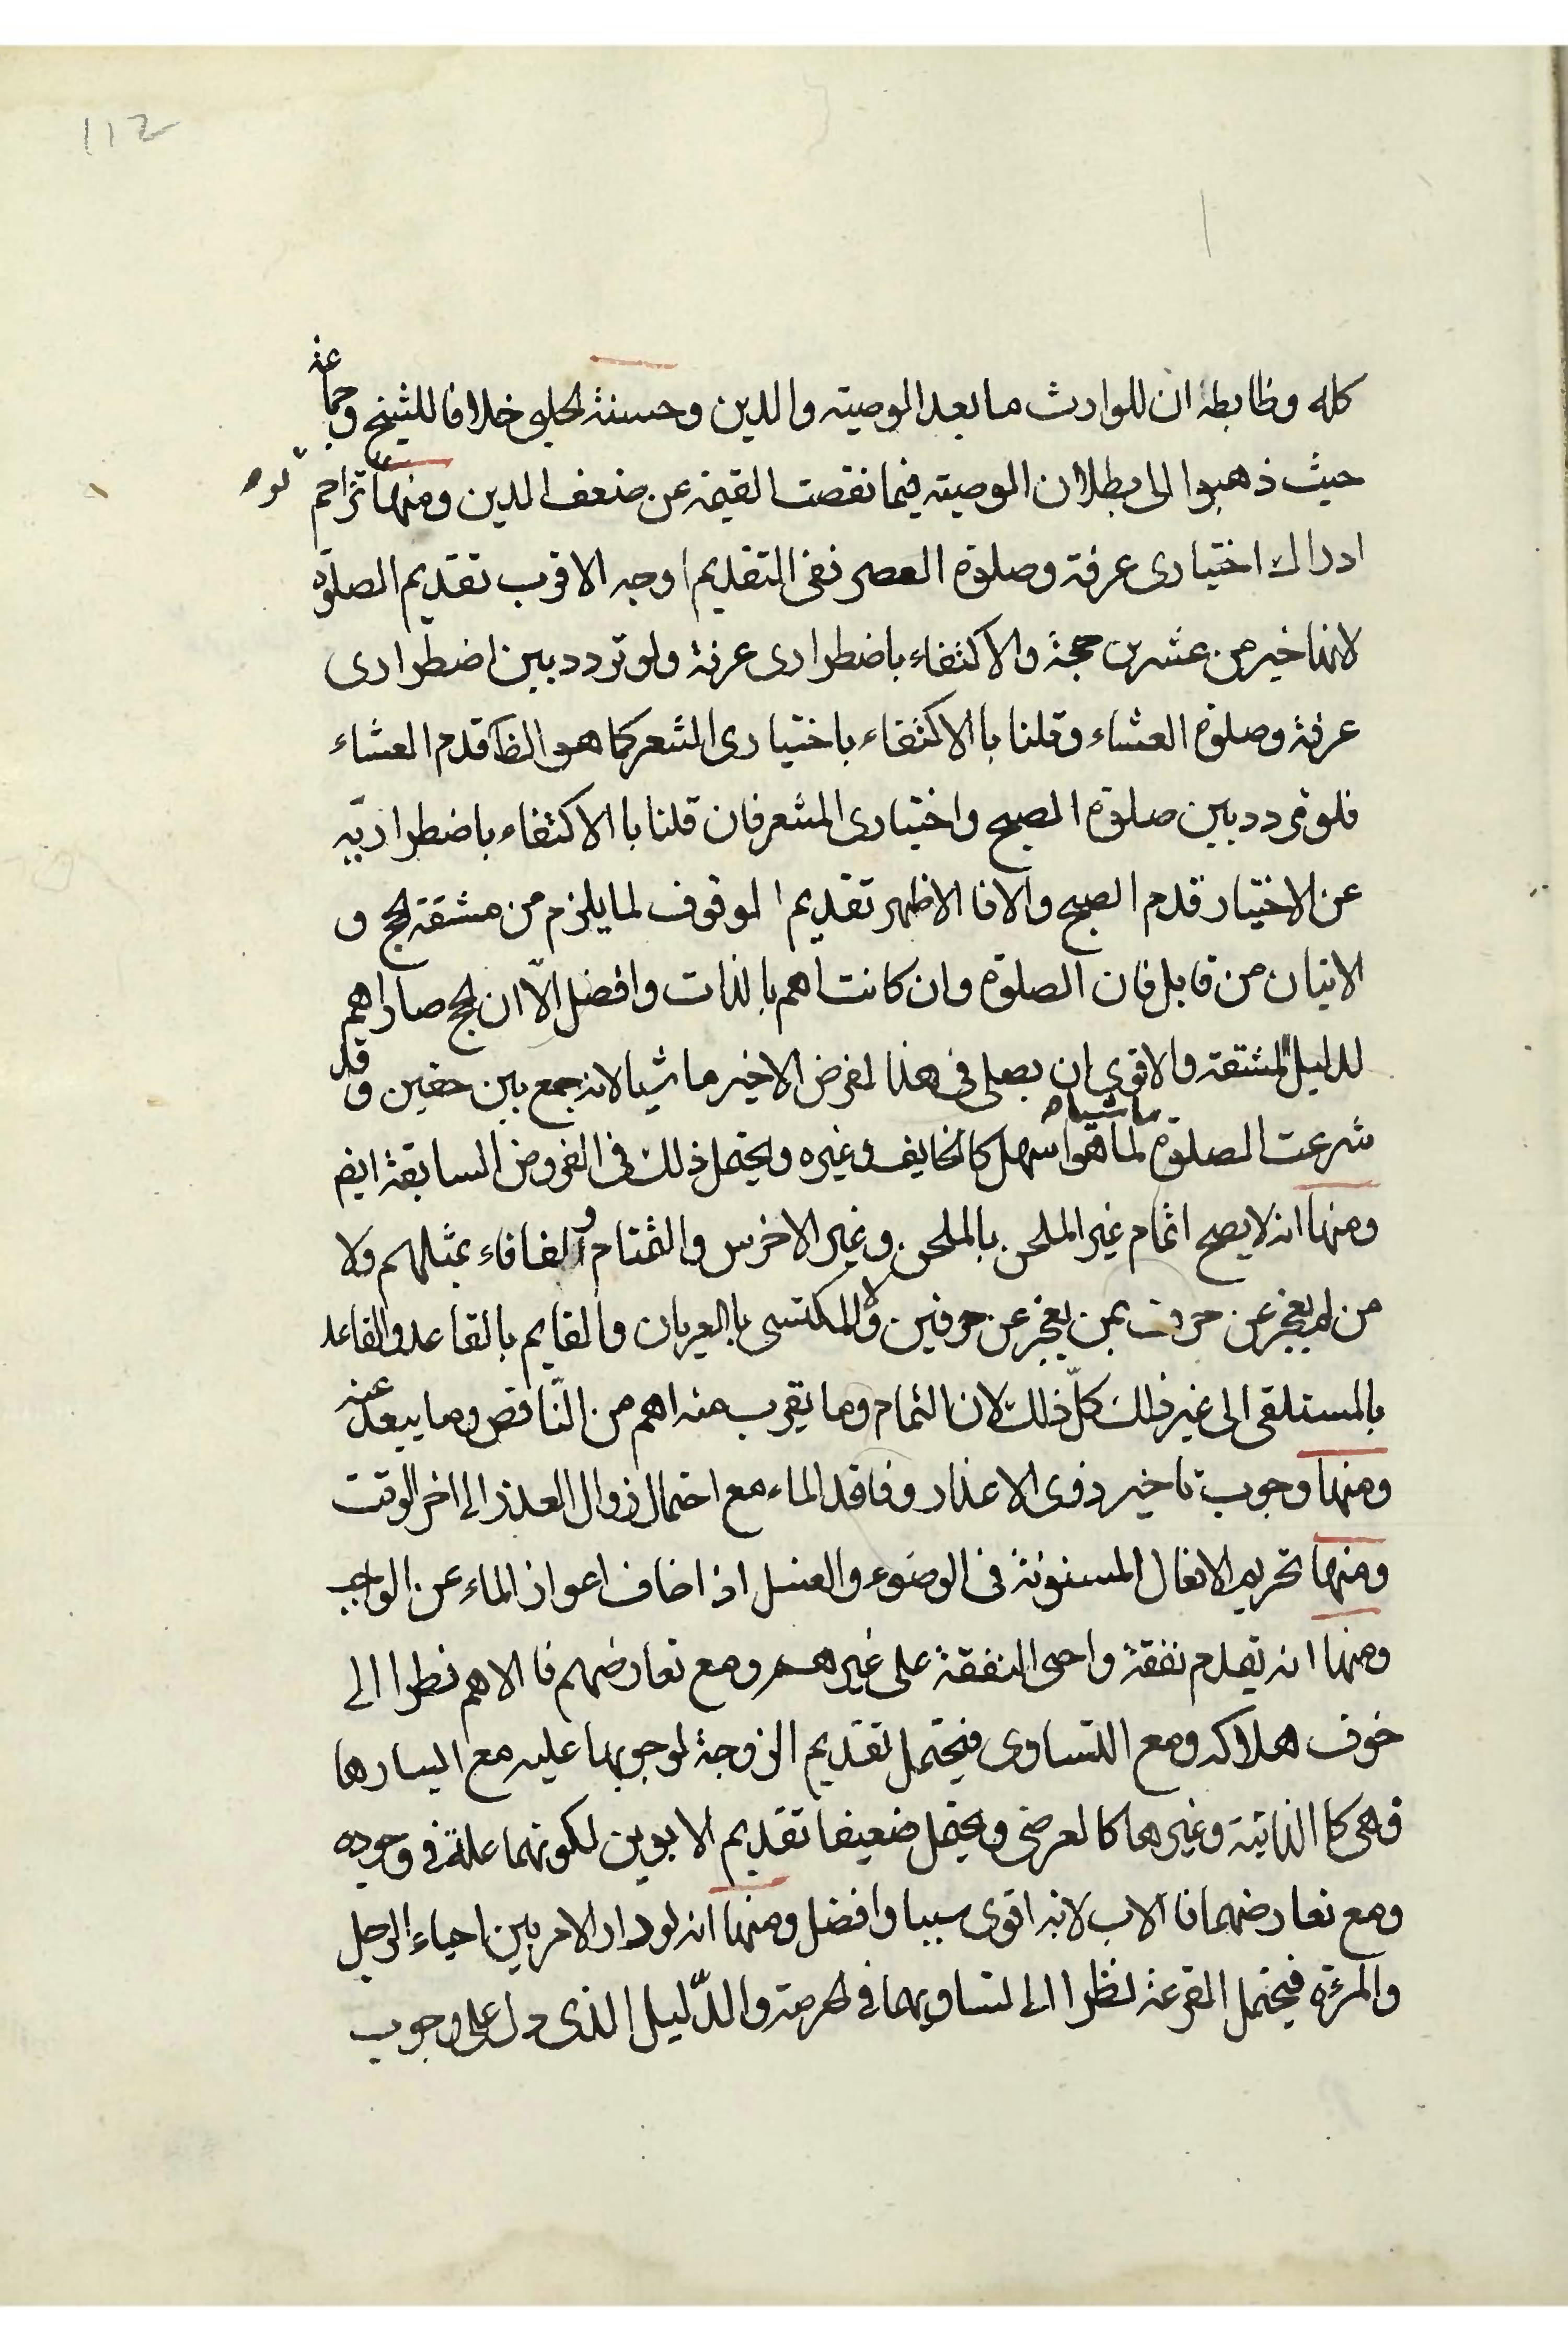 112
كله وظابطة ان للوارث ما بعد الوصيته والدين وحسنة لحلبى خلافا للشيخ وجماعة
حيث ذهبوا الى بطلان الوصيته فيما نقصت القيمة عن ضعف الدين ومنها تزاحم
ادراك اختيارى عرفة وصلوة العصر نفى التقديم اوجه الاقرب تقديم الصلوة
لانها خير من عشرين حجة والاكتفاء باضطرارى عرفة ولو تردد بين اضطرارى
عرفة وصلوة العشاء وقلنا با الاكتفاء باختيارى المشعر كما هو الظ قدم العشاء
فلو تردد بين صلوة الصبح واختيارى المشعر فان قلنا با الاكتفاء باضطراريّه
عن الاختيار قدم الصبح والا فا الاظهر تقديم الوقوف لما يلزم من مشقة لحج و
الاتيان من قابل فان الصلوة وان كانت اهم بالذات وافضل الّا ان لحج صار اهم
لدليل المشقة والاقوى ان يصلى فى هذا لفرض الاخير ماشيا لانه جمع بين حقين وقد
شرعت الصلوة ماشياه لما هو اسهل كالخايف وغيره ويحتمل ذلك فى الفروض السابقة ايضا
ومنها انه لا يصح ائمام غير الملحن بالملحن وغير الاخرس والتمتام والفافاء بمثلهم ولا
من لم يعجز عن حرف بمن يعجز عن حرفين ولا المكتسى با العريان والقايم بالقاعد والقاعد
بالمستلقى الى غير ذلك كلّ ذلك لان التمام وما يقرب منه اهم من النّاقص وما يبعد عنه
ومنها وجوب تاخير ذوى الاعذار وفاقد الماء مع احتمال زوال العذر الى اخر الوقت
ومنها تحريم الافعال المسنونة فى الوضوء والغسل اذا خاف اعواز الماء عن الواجب
ومنها انه تقدم نفقة واجبى النفقة على غيرهم ومع تعارضهم فا الاهم نظرا الى
خوف هلاكه ومع التساوى فيحتمل تقديم الزوجة لوجوبها عليه مع اليسارها
فهى كا الذاتية وغيرها كالعرضى ويحتمل ضعيفا تقديم الابوين لكونهما علة فى وجوده
ومع تعارضهما فا الاب لانه اقوى سببا وافضل ومنها انه لو دار الامر بين احياء الرجل
والمرئة فيحتمل القرعة نظرا الى لتساويهما فى لحرمة والدّليل الذى دل على وجوب